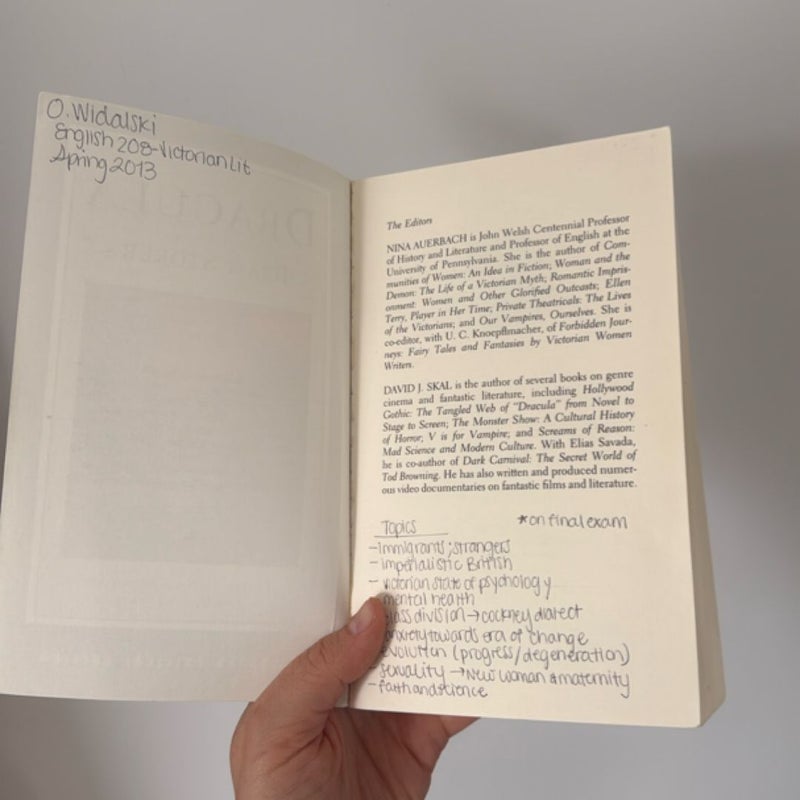 O. Widalski
English 208-Victorian Lit
Spring 2013
The Editors
NINA AUERBACH is John Welsh Centennial Professor
of History and Literature and Professor of English at the
University of Pennsylvania. She is the author of Com-
munities of Women: An Idea in Fiction; Woman and the
Demon: The Life of a Victorian Myth; Romantic Impris-
onment: Women and Other Glorified Outcasts; Ellen
Terry, Player in Her Time; Private Theatricals: The Lives
of the Victorians; and Our Vampires, Ourselves. She is
co-editor, with U. C. Knoepflmacher, of Forbidden Jour-
neys: Fairy Tales and Fantasies by Victorian Women
Writers.
DAVID J. SKAL is the author of several books on genre
cinema and fantastic literature, including Hollywood
Gothic: The Tangled Web of "Dracula" from Novel to
Stage to Screen; The Monster Show: A Cultural History
of Horror; V is for Vampire; and Screams of Reason:
Mad Science and Modern Culture. With Elias Savada,
he is co-author of Dark Carnival: The Secret World of
Tod Browning. He has also written and produced numer-
ous video documentaries on fantastic films and literature.
*on final exam
Topics
-immigrants; strangers
-imperialistic British
-victorian state of psychology
mental health
class division→cockney dialect
anxiety towards era of change
evolution (progress/degeneration)
-sexuality →New Woman & maternity
-faith and science